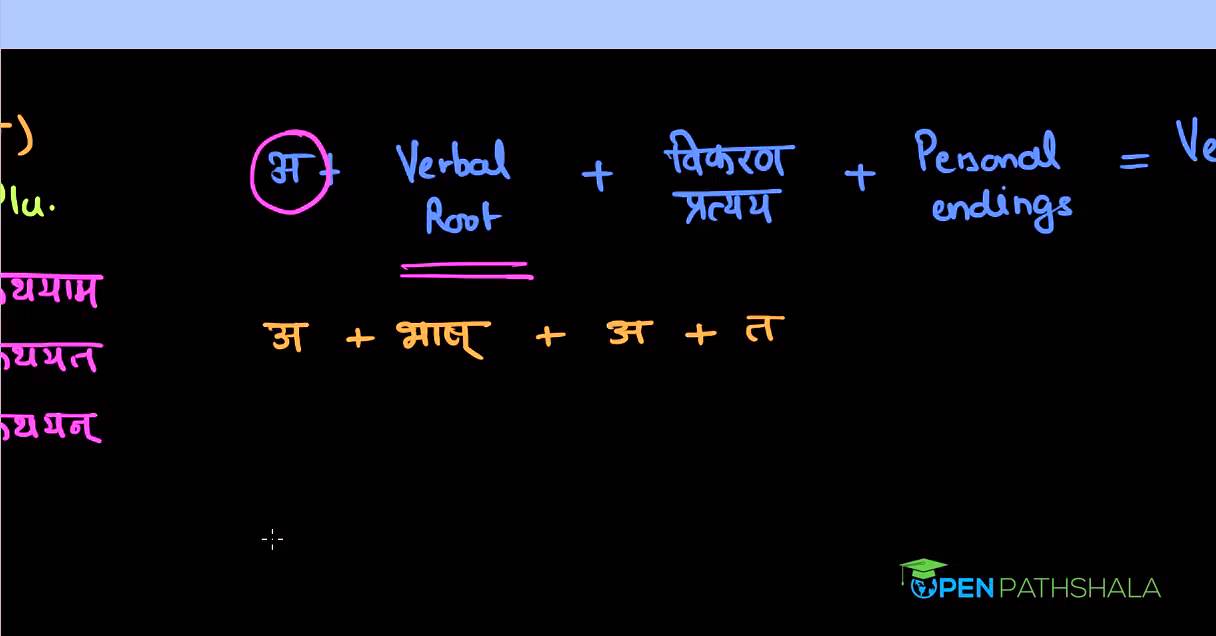 )
Plu.
थयाम
थयत
थयन्
अ + Verbal Root + विकरण प्रत्यय + Personal endings =
अ + भाष् + अ + त
OPEN PATHSHALA